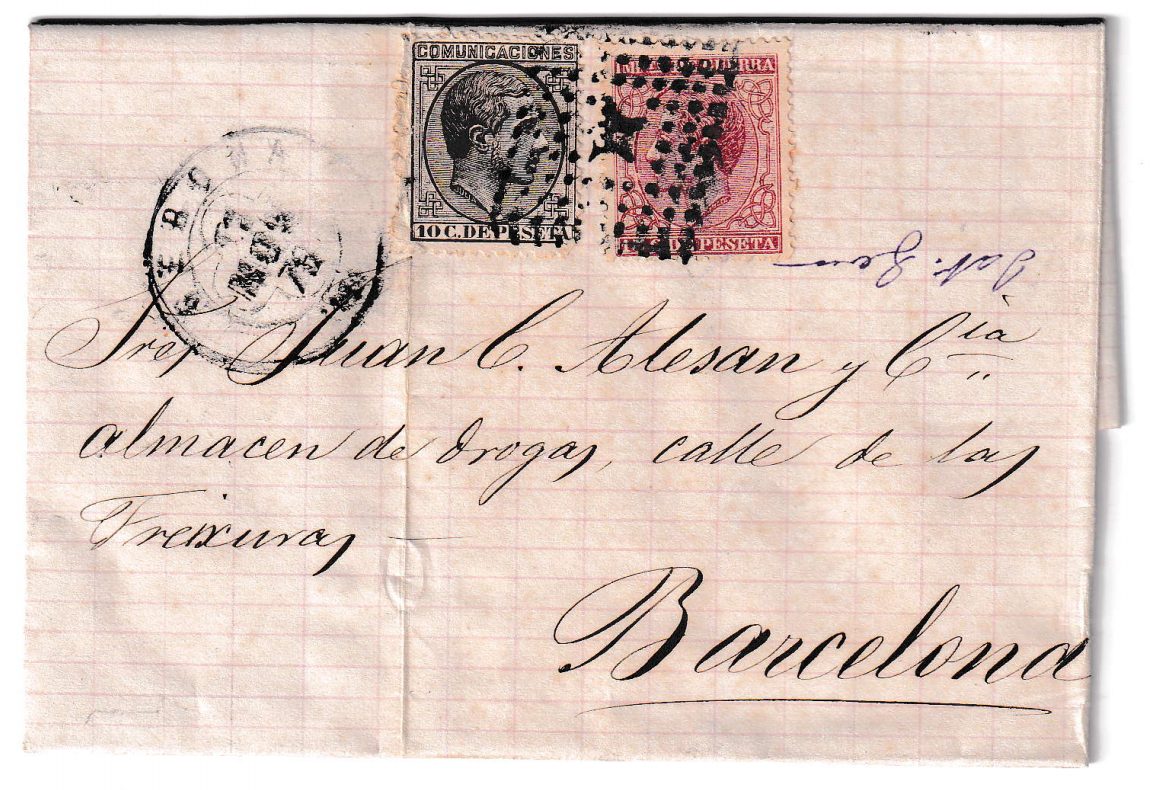 COMUNICACIONES
10 C. DE PESETA
DE PESETA
GERONA
79
Sres Juan C. Alesan y Cia
almacen de drogas, calle de las
Freixuras
Barcelona